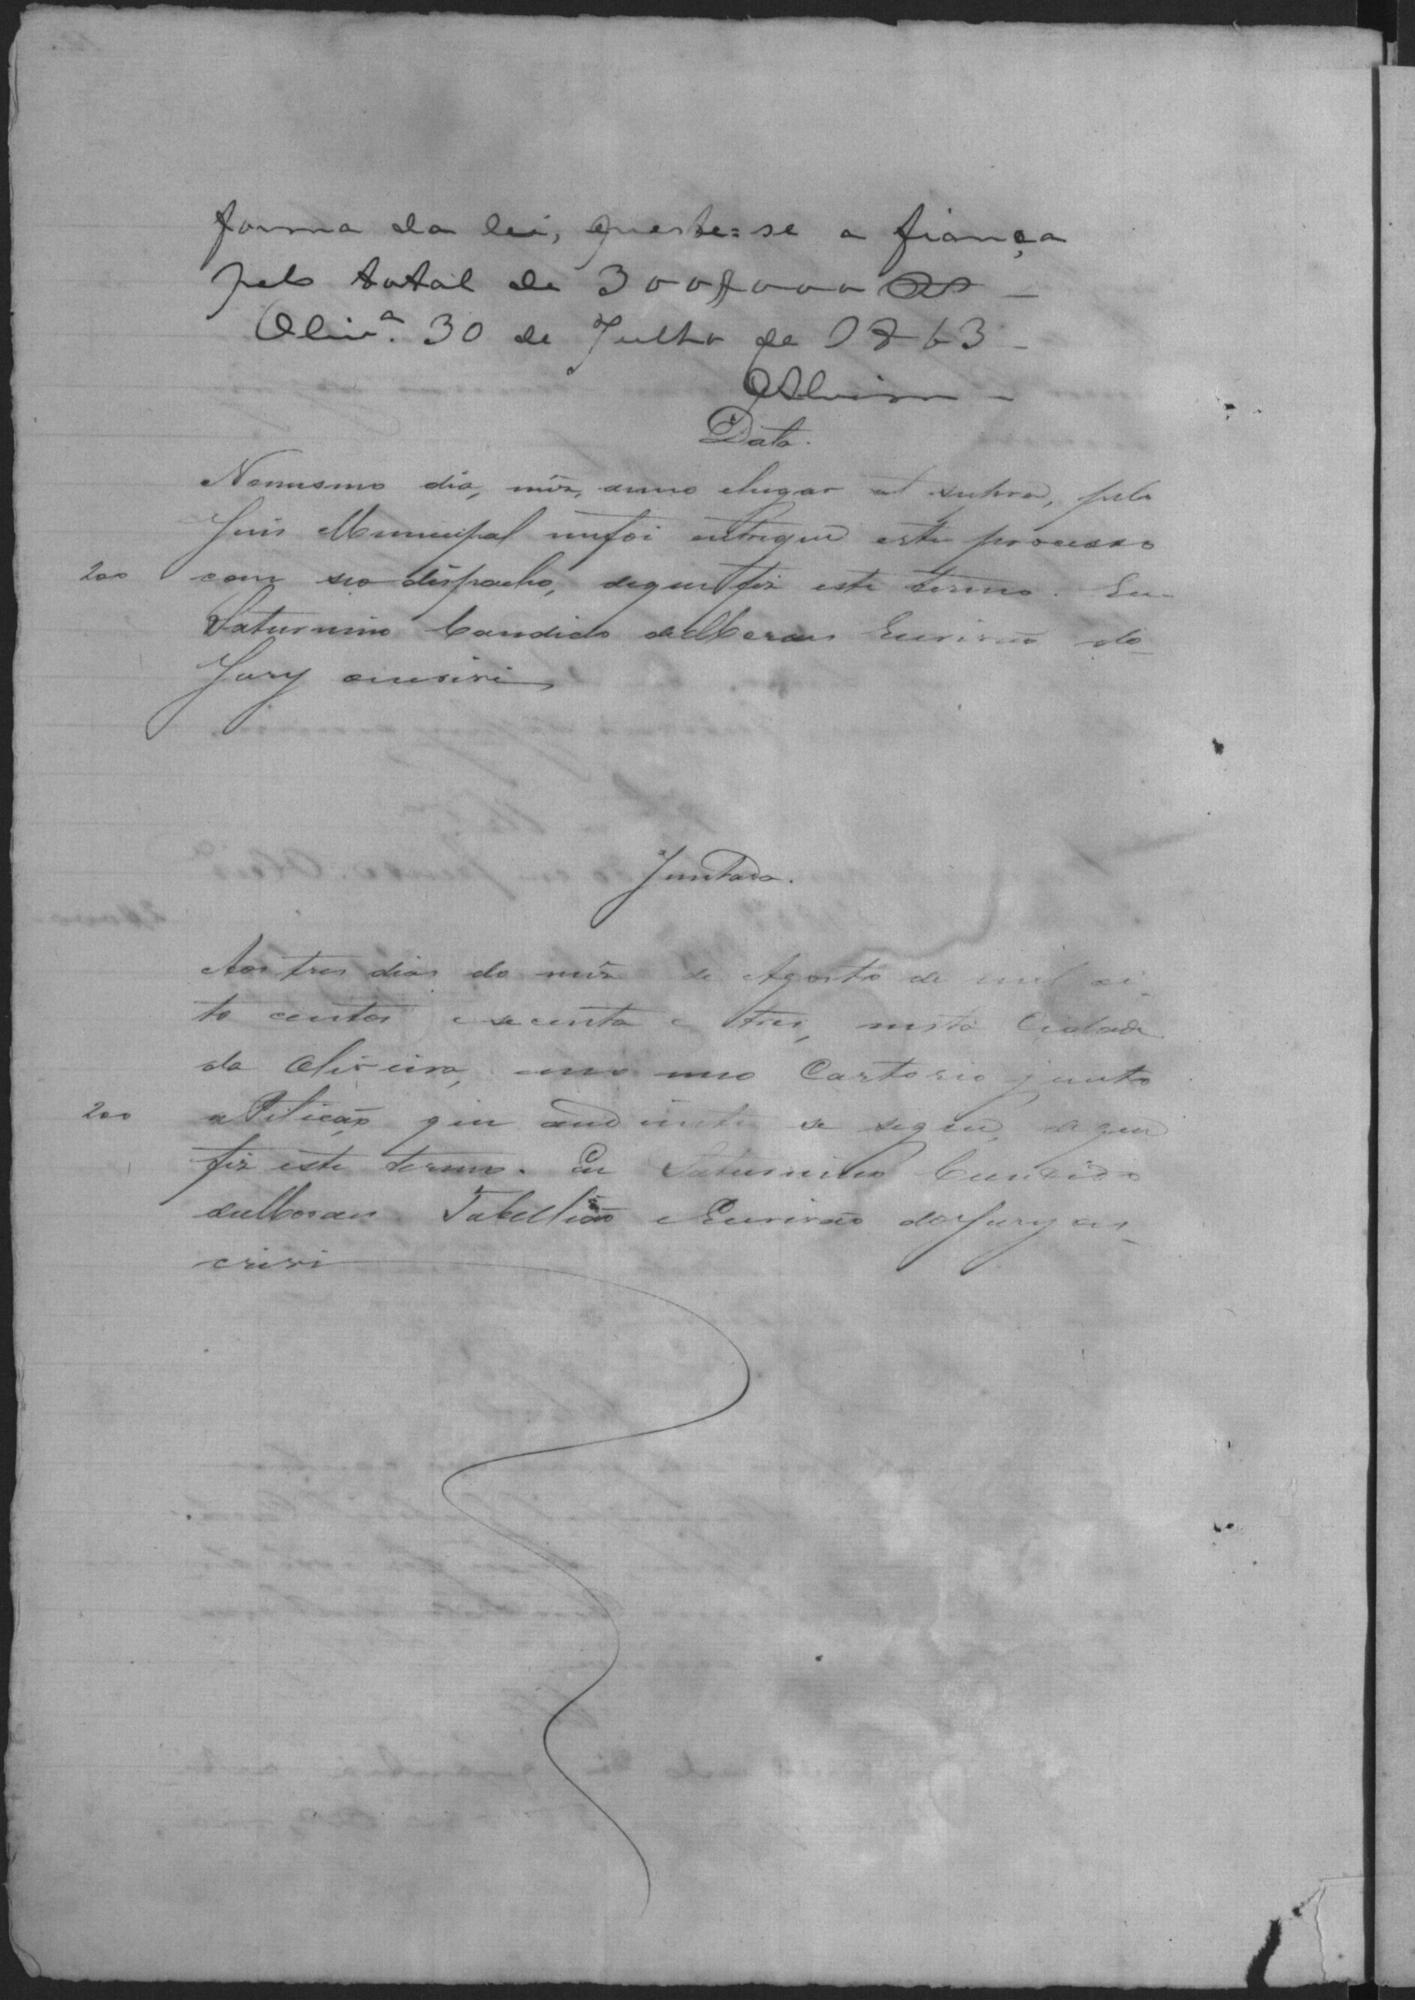 forma da lei, preste=se a fiança
pelo total de 300$000 rs —
Olivrª. 30 de Julho de 1863 —
Data.
No mesmo dia, mez, anno elugar ut supra, pelo
Juis Municipal mefoi entregue este processo
200 com seo dispacho, dequefiz este termo. Eu
Saturnino Candido deMoraes Escrivão do
Jury oescrivi
Juntada.
Aos tres dias do mez de Agosto de mil oi-
to centos e secenta e tres, nesta Cidade
da Oliveira, em meo Cartorio junto
200 a Petição que aodiante se segue, de que
fiz este termo. Eu Saturnino Candido
deMoraes Tabellião e Escrivão doJury es-
crivi